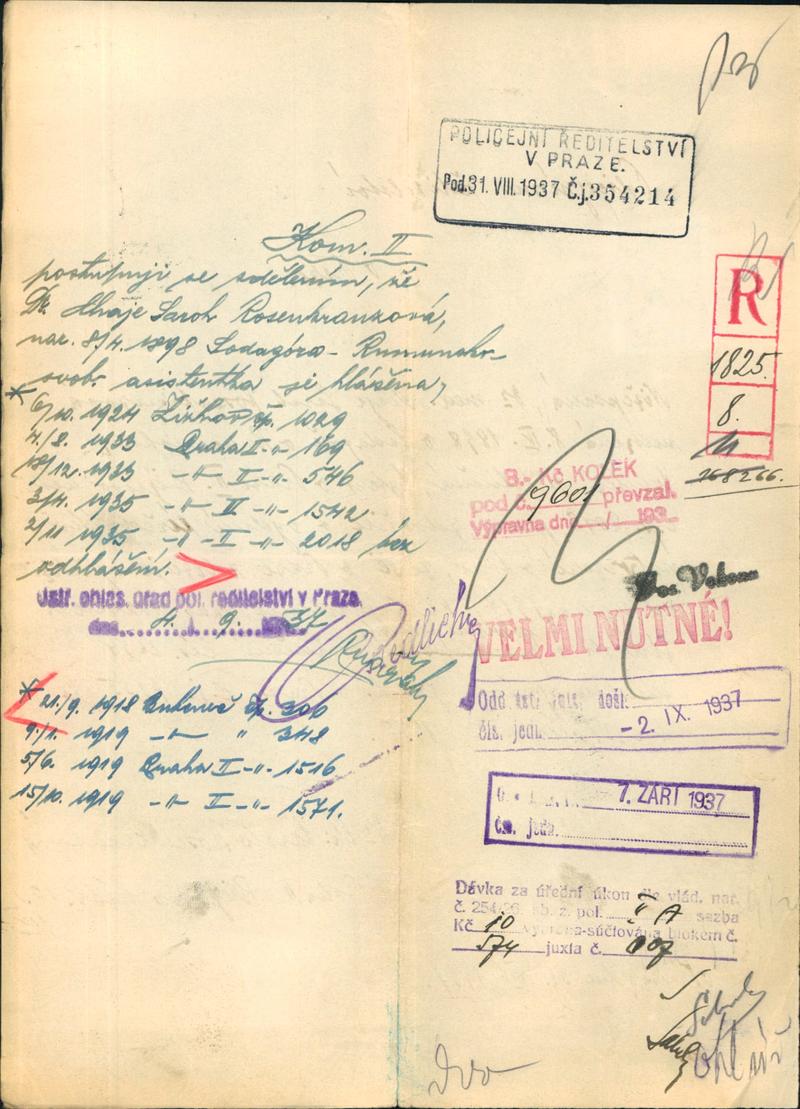 POLICEJNÍ ŘEDITELSTVÍ
V PRAZE.
Pod. 31. VIII. 1937 Č.j. 354214
Kom. II
postupuji se sdělením, že
Dr. Chaje Sarah Rosenkranzová,
nar. 8/4. 1898 Sadagóra - Rumunsko
svob. asistentka je hlášena,
* 6/10. 1924 Žižkov čp. 1029
4/8. 1933 Praha II -"- 169
18/12. 1933 -"- II -"- 546
2/4. 1935 -"- II -"- 1542
2/11 1935 -"- II -"- 2018 bez
odhlášení.
Ústř. ohlas. úřad pol. ředitelství v Praze.
dne 4. 9. 1937
* 21/9. 1918 Bubeneč čp. 306
9/1. 1919 -"- " 348
5/6. 1919 Praha II -"- 1516
15/10. 1919 -"- II -"- 1571.
R
1825.
8.
168266.
8.- Kč KOLEK
pod č. 9601 převzal.
Výpravna dne / 193
VELMI NUTNÉ!
Odd došl.
čís. jedn. -2. IX. 1937
7. ZÁŘÍ 1937
Čís. jedn.
Dávka za úřední úkon dle vlád. nař.
č. 254/26 sb. z. pol. A sazba
Kč 10 vybrána-súčtována blokem č.
574 juxta č. 007